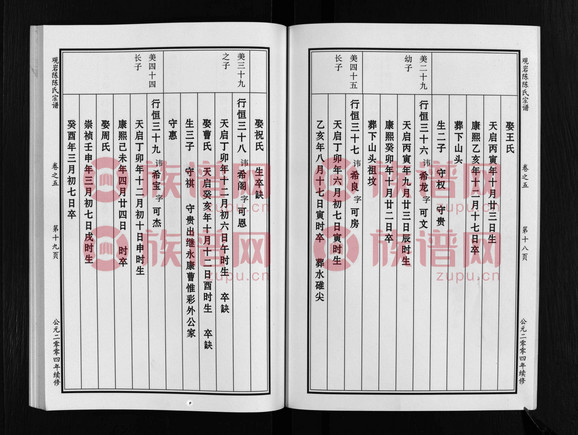 观岩陈陈氏宗谱
卷之五
第十八页
公元二零零四年续修
娶王氏
天启丙寅年十月廿三日生
康熙乙亥年十二月十七日卒
葬下山头
生二子 守权 守贵
美二十九
幼子
行恒三十六 讳希龙 字可文
天启丙寅年九月廿三日辰时生
康熙癸卯年十月廿二日卒
葬下山头祖坟
美四十五
长子
行恒三十七 讳希良 字可房
天启丁卯年六月初七日寅时生
乙亥年八月十七日寅时卒 葬水碓尖
娶祝氏 生卒缺
美三十九
之子
行恒三十八 讳希阁 字可恩
天启丁卯年十二月初六日午时生 卒缺
娶曹氏 天启癸亥年十月十二日酉时生 卒缺
生三子 守祺 守贵出继永康曹惟彩外公家
守惠
美四十四
长子
行恒三十九 讳希宝 字可杰
天启丁卯年十二月初十日申时生
康熙己未年四月廿四日 时卒
娶周氏
崇祯壬申年三月初七日戌时生
癸酉年三月初七日卒
观岩陈陈氏宗谱
卷之五
第十九页
公元二零零四年续修
族谱网
zupu.cn
族谱网
zupu.cn